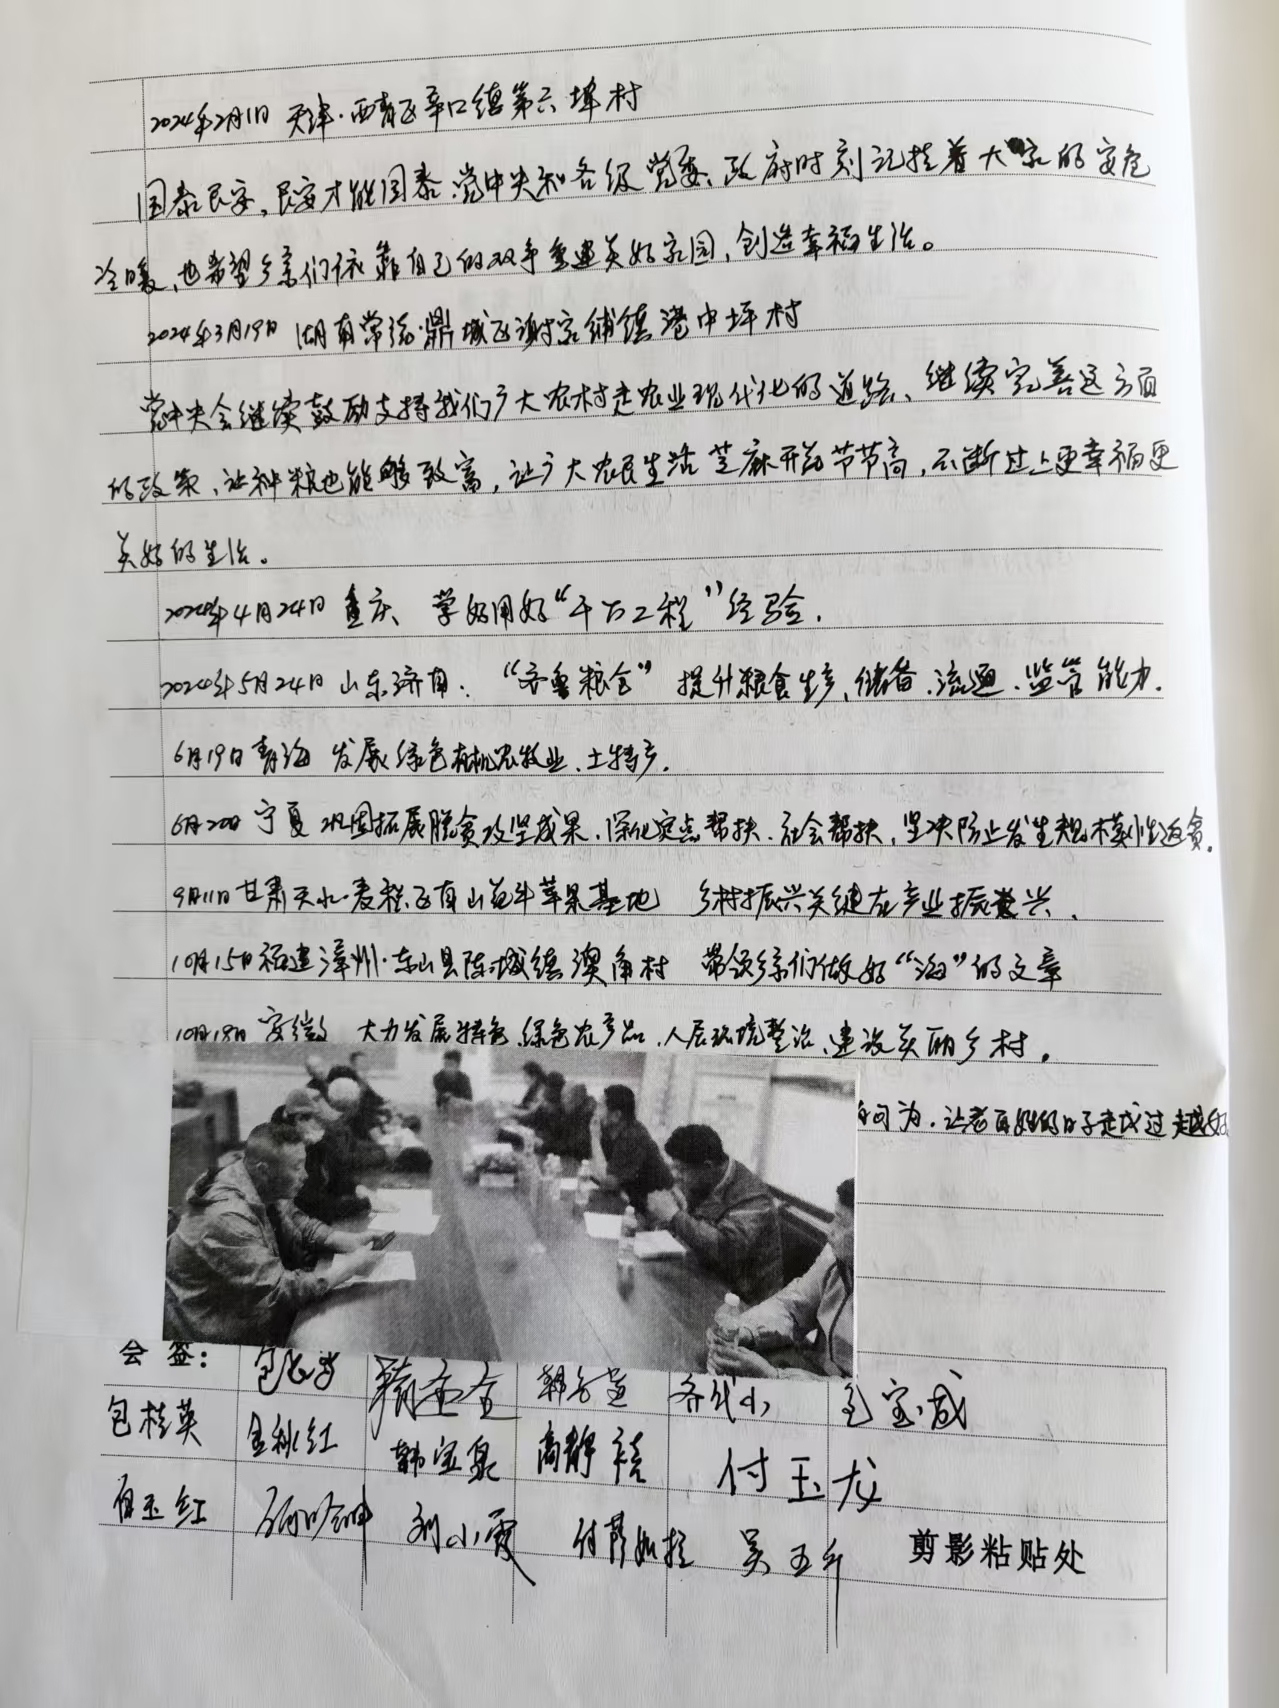 2024年2月1日 天津·西青区辛口镇第六埠村
国泰民安,民安才能国泰.党中央和各级党委、政府时刻记挂着大家的安危
冷暖,也希望乡亲们依靠自己的双手重建美好家园,创造幸福生活。
2024年3月19日 湖南常德·鼎城区谢家铺镇港中坪村
党中央会继续鼓励支持我们广大农村走农业现代化的道路、继续完善这方面
的政策、让种粮也能够致富,让广大农民生活芝麻开花节节高,不断过上更幸福更
美好的生活。
2024年4月24日 重庆 学好用好“千万工程”经验.
2024年5月24日 山东济南. “齐鲁粮仓” 提升粮食生产、储备、流通、监管能力.
6月19日 青海 发展绿色有机农牧业、土特产.
6月20日 宁夏 巩固拓展脱贫攻坚成果.深化定点帮扶、社会帮扶,坚决防止发生规模性返贫.
9月11日甘肃天水·麦积区南山花牛苹果基地 乡村振兴关键在产业振兴.
10月15日福建漳州·东山县陈城镇澳角村 带领乡亲们做好“海”的文章
10月18日 安徽 大力发展特色、绿色农产品.人居环境整治、建设美丽乡村.
为.让老百姓的日子越过越好
会签:
包桂英 金秋红 韩宝泉 高静 付玉龙 包宝成
白玉红 刘小霞 吴五斤 剪影粘贴处